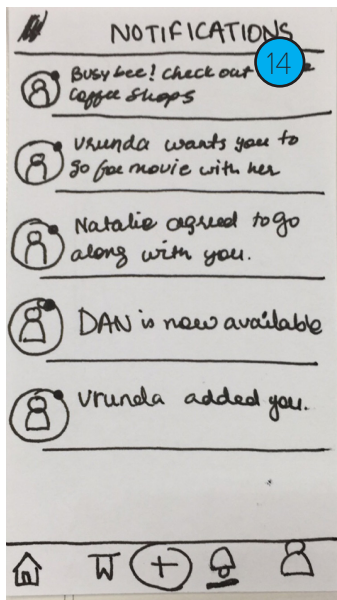 NOTIFICATIONS
14
Busy bee! Check out
coffee shops
Vrunda wants you to
go for movie with her
Natalie agreed to go
along with you.
DAN is now available
Vrunda added you.